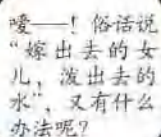 嗳——！俗话说
“嫁出去的女
儿，泼出去的
水”，又有什么
办法呢？